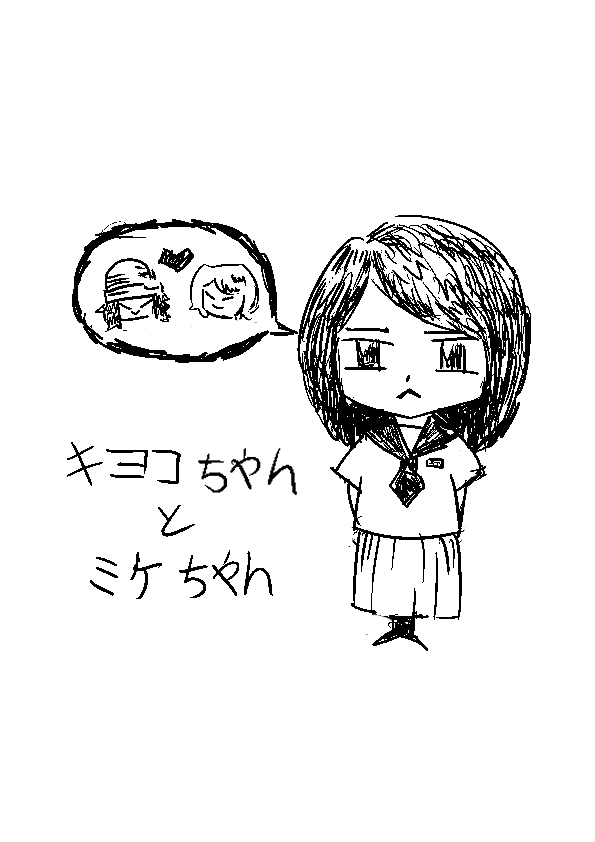 キヨコちゃん
と
ミケちゃん